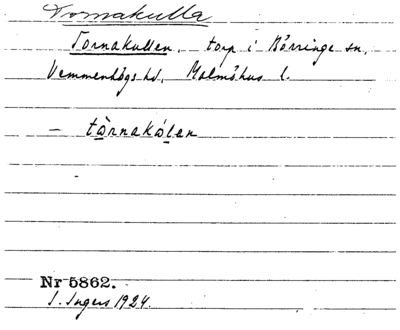 Tornakulla
Tornakullen, torp i Börringe sn,
Vemmenhögs hd, Malmöhus l.
– tòrnakólen
Nr 5862.
I. Ingers 1924.